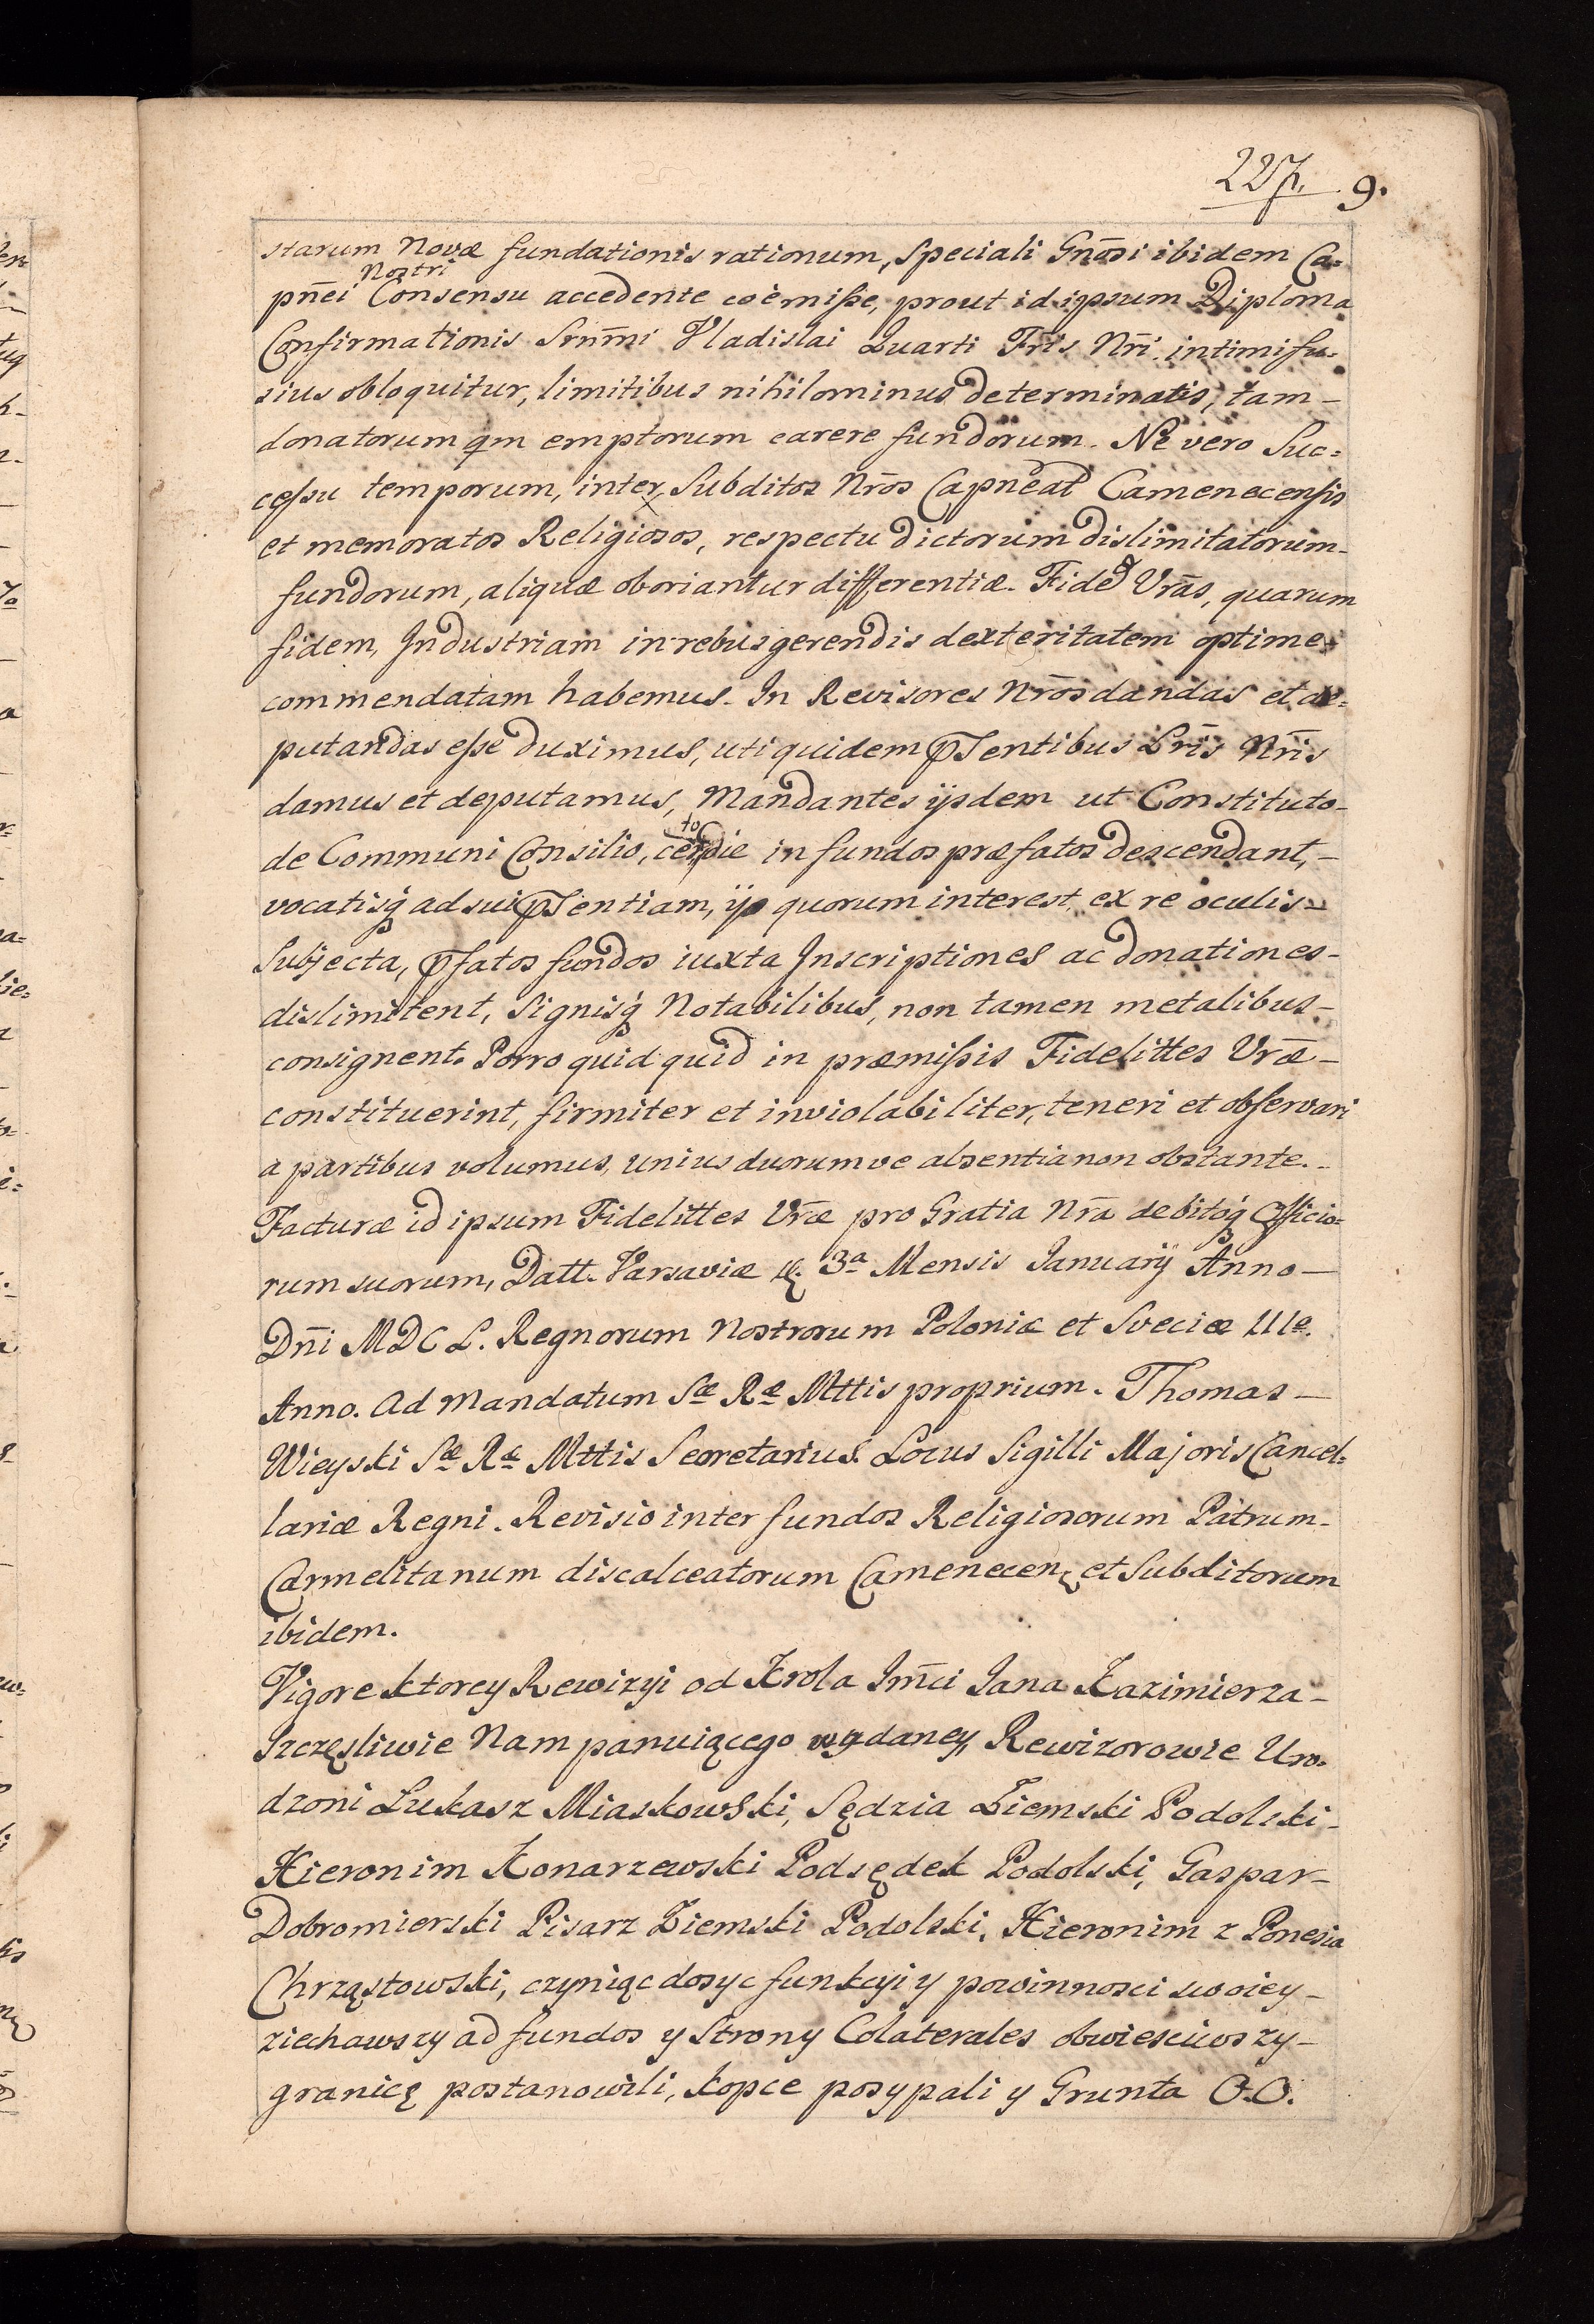 227. 9.
starum Novæ fundationis rationum, Speciali Gnōsi ibidem Ca=
Nostri
pn̄ei Consensu accedente coëmisse, prout id ipsum Diploma
Confirmationis Srnm̄i Vladislai Quarti Fr̄is Nr̄i intimi fu=
sius obloquitur, limitibus nihilominus determinatis, tam –
donatorum qm emptorum carere fundorum. Ne vero Suc=
cessu temporum, inter Subditos Nr̄os Capneāl Camenecensis
et memoratos Religiosos, respectu dictorum dislimitatorum –
fundorum, aliquæ oboriantur differentiæ. Fided Vrās, quarum
fidem, Industriam in rebus gerendis dexteritatem optime
commendatam habemus. In Revisores Nr̄os dandas et de=
putandas esse duximus, uti quidem pſentibus Lr̄is Nr̄is
damus et deputamus, Mandantes ijsdem ut Constituto –
to
de Communi Consilio, cer die in fundos præfatos descendant, –
vocatisq́ ad sui pſentiam, ijs quorum interest, ex re oculis –
Subjecta, pfatos fundos iuxta Inscriptiones ac donationes –
dislimitent, Signisq́ Notabilibus, non tamen metalibus –
consignent. Porro quid quid in præmissis Fidelittes Vrǣ –
constituerint, firmiter et inviolabiliter, teneri et observari
a partibus volumus, unius duorumve absentia non obstante. –
Facturæ id ipsum Fidelittes Vrǣ pro Gratia Nrā debitoq́ Officio=
rum suorum, Datt. Varsaviæ d. 3a Mensis Januarij Anno –
Dn̄i MDCL. Regnorum Nostrorum Poloniæ et Sveciæ IIIe.
Anno. Ad Mandatum Sæ Ræ Mttis proprium. Thomas –
Wieyski Sæ Ræ Mttis Secretarius. Locus Sigilli Majoris Cancel=
lariæ Regni. Revisio inter fundos Religiosorum Patrum –
Carmelitanum discalceatorum Camenecen. et Subditorum
ibidem.
Vigore ktorey Rewizyi od Krola Jm̄ci Jana Kazimierza –
Szczęsliwie Nam panuiącego wydaney, Rewizorowie Uro=
dzoni Łukasz Miaskowski, Sędzia Ziemski Podolski –
Hieronim Konarzewski Podsędek Podolski, Gaspar –
Dobromierski Pisarz Ziemski Podolski, Hieronim z Ponesia
Chrząstowski, czyniąc dosyc funkcyi y powinnosci swoiey –
ziechawszy ad fundos y Strony Colaterales obwiesciwszy –
granicę postanowili, kopce posypali y Grunta O.O.